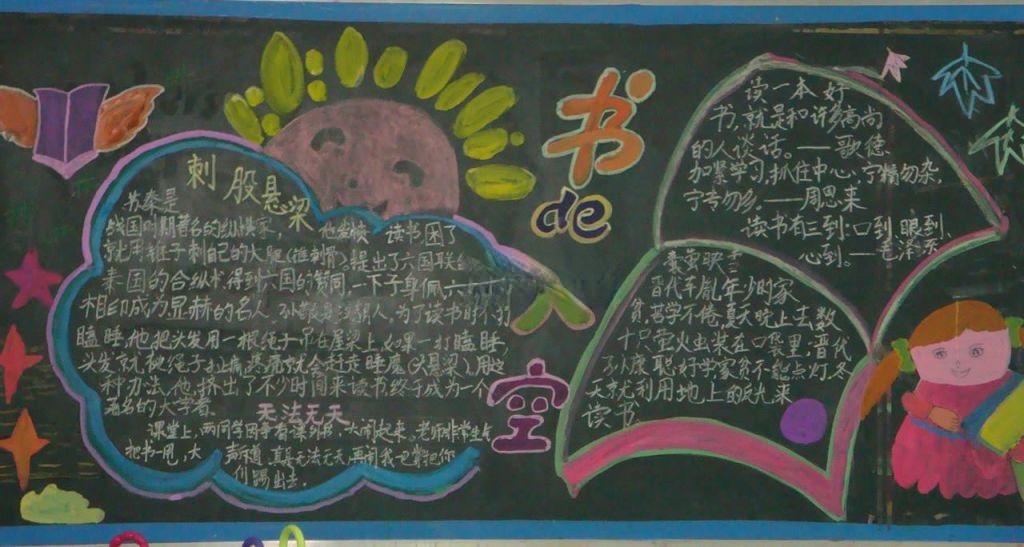 刺股悬梁
苏秦是
战国时期著名的纵横家,读书困了
就用锥子刺自己的大腿(锥刺骨)。提出了六国联
秦国的合纵术得到六国的赞同,一下子身佩六
相印成为显赫的名人 为了读书时不打
瞌睡,他把头发用一根绳子吊在屋梁上,如果一打瞌睡,
头发就被绳子扯痛,疼痛就会赶走睡魔(头悬梁)用这
种办法,他挤出了不少时间来读书终于成为一个
著名的大学者
无法无天
课堂上,两同学因争看课外书,大闹起来,老师非常生气
把书一甩,大声斥道:真是无法无天,再闹我
们踢出去.
书
de
天
空
读一本好
书,就是和许多高尚
的人谈话。——歌德
加紧学习,抓住中心,宁精勿杂
宁专勿多。——周恩来
读书有三到:口到,眼到,
心到。——毛泽东
囊萤映雪
晋代车胤年少时家
贫,苦学不倦,夏天晚上去数
十只萤火虫装在口袋里,晋代
孙康聪好学家贫不能点灯,冬
天就利用地上的反光来
读书